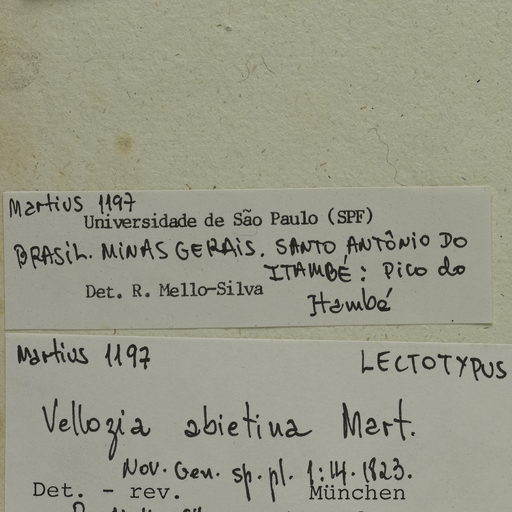 Martius 1197
Universidade de São Paulo (SPF)
BRASIL. MINAS GERAIS. SANTO ANTÔNIO DO
ITAMBÉ: Pico do
Det. R. Mello-Silva
Itambé
Martius 1197
LECTOTYPUS
Vellozia abietina Mart.
Nov. Gen. sp. pl. 1:14. 1823.
Det. - rev. München